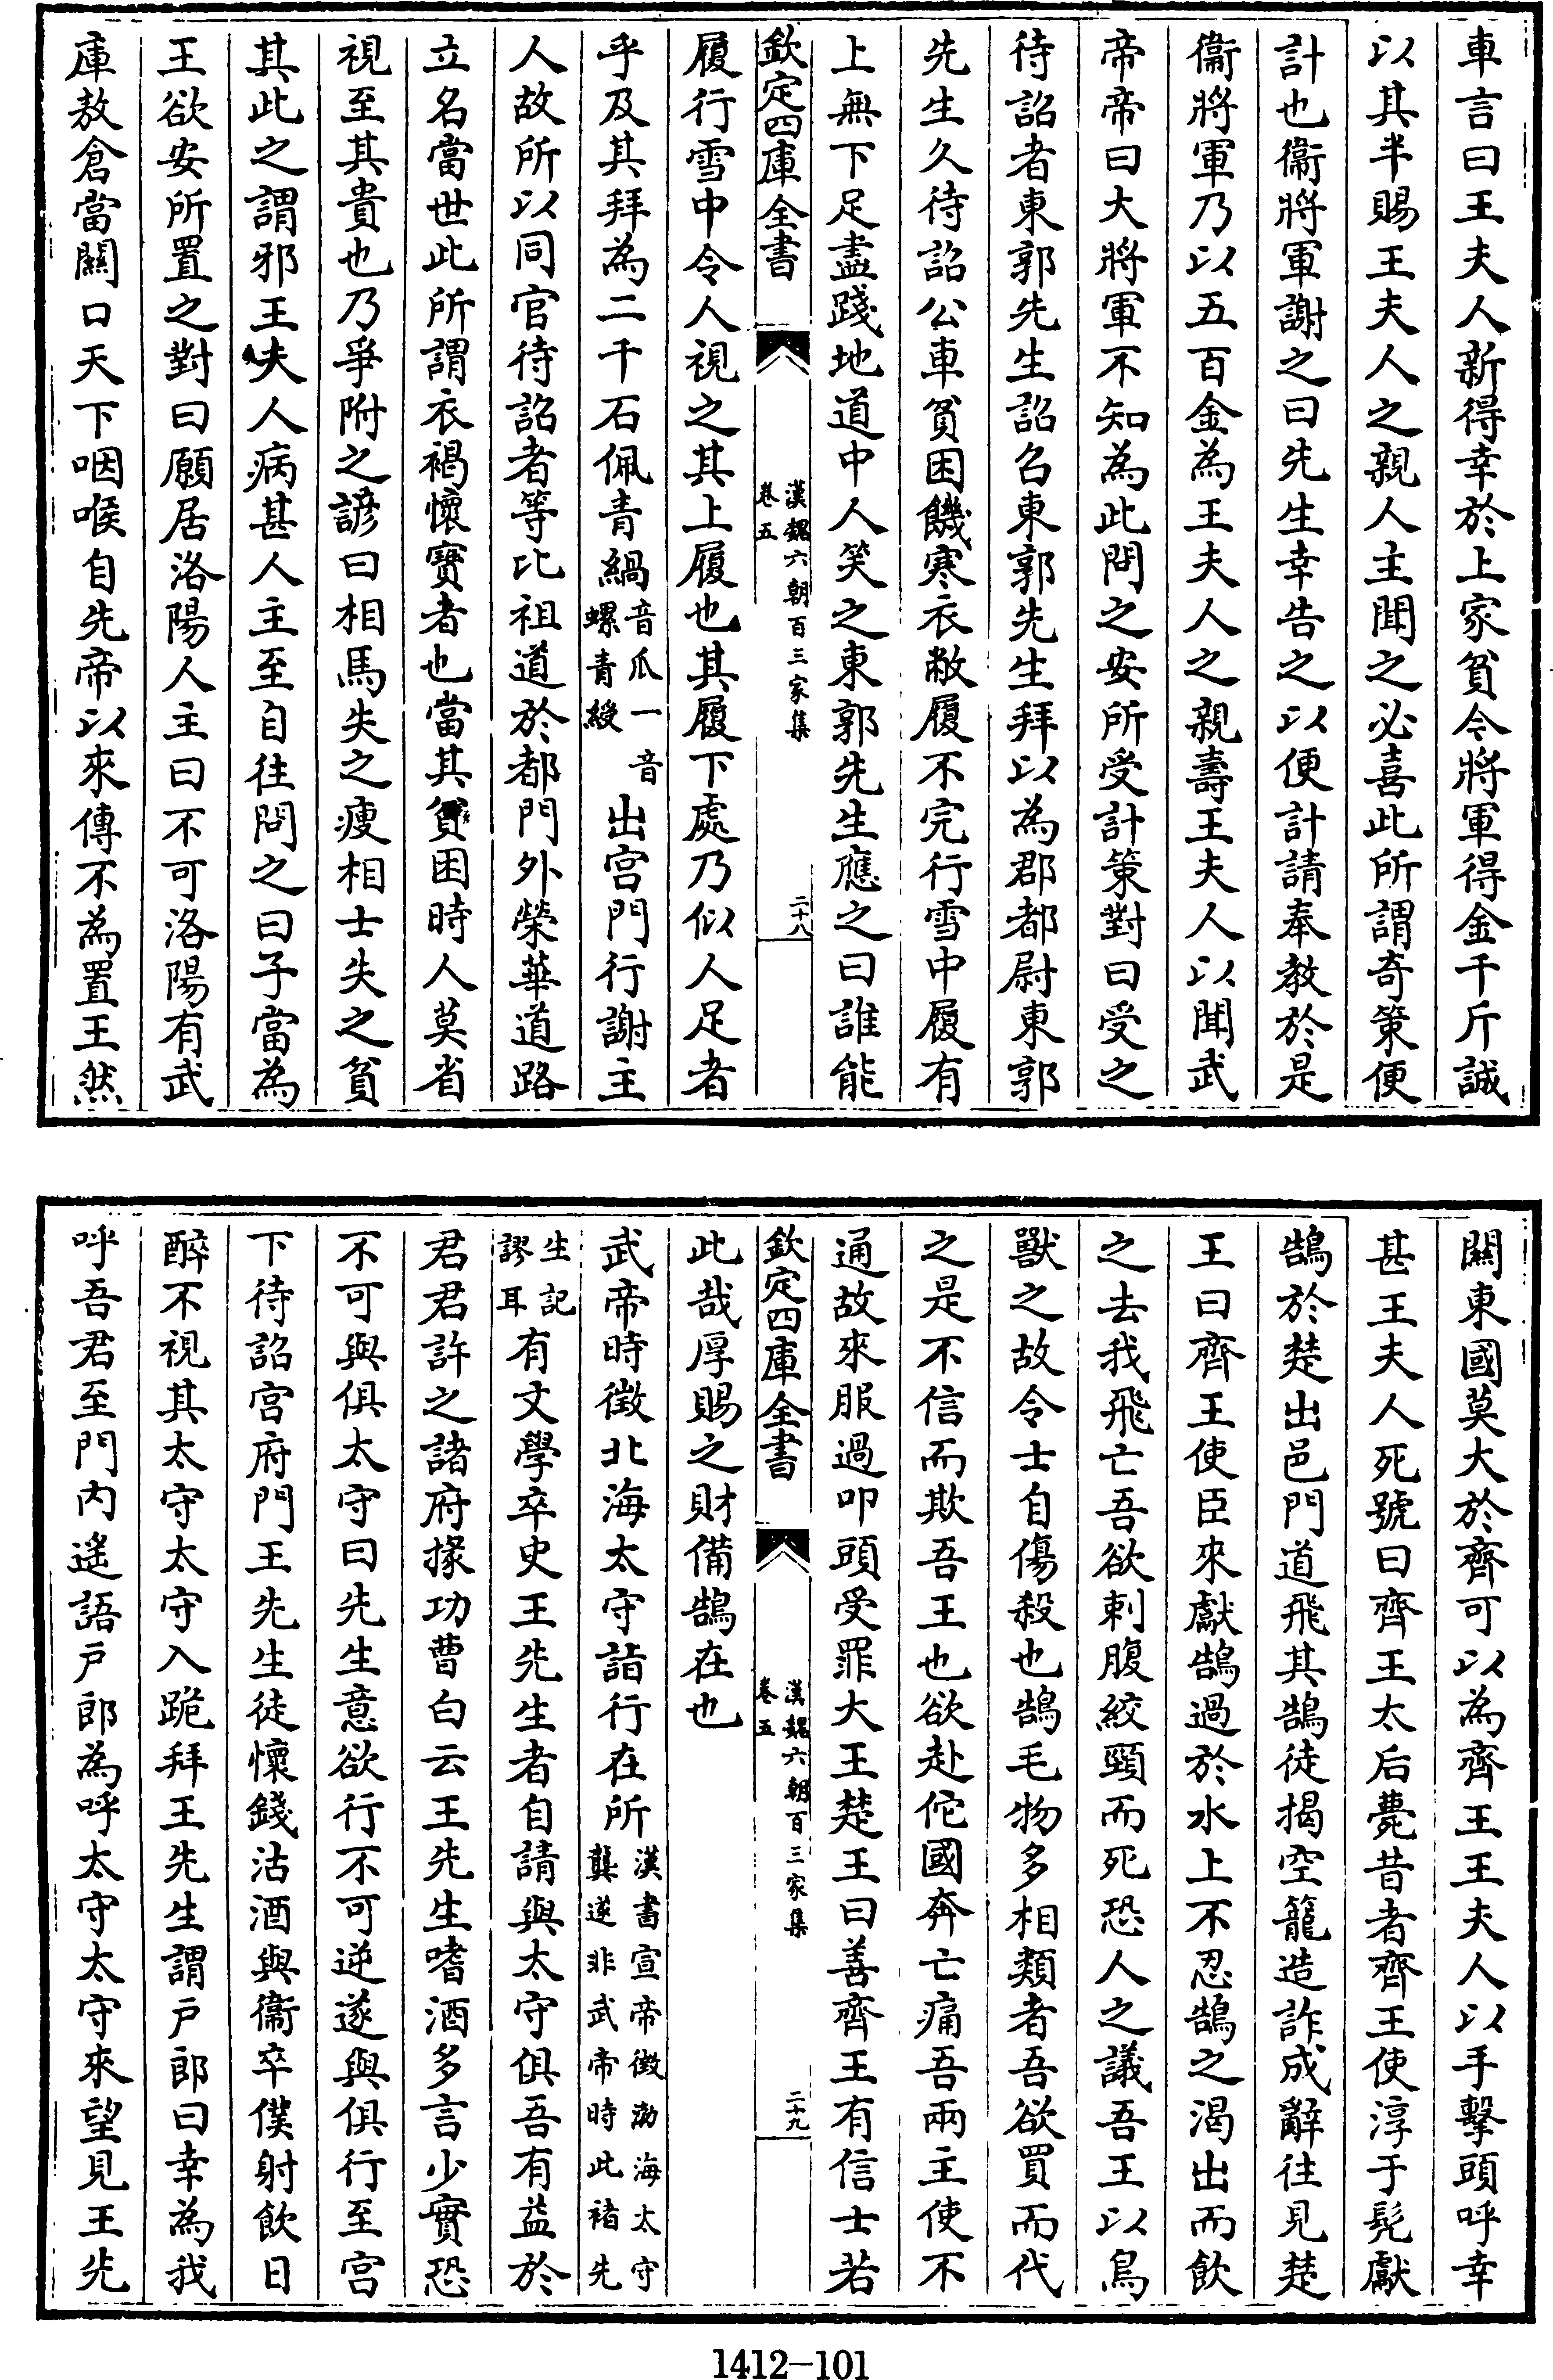 車言曰王夫人新得幸於上家貧今將軍得金千斤誠
以其半賜王夫人之親人主聞之必喜此所謂奇策便
計也衞將軍謝之曰先生幸告之以便計請奉教於是
衞將軍乃以五百金為王夫人之親壽王夫人以聞武
帝帝曰大將軍不知為此問之安所受計策對曰受之
待詔者東郭先生詔召東郭先生拜以為郡都尉東郭
先生久待詔公車貧困饑寒衣敝履不完行雪中履有
上無下足盡踐地道中人笑之東郭先生應之曰誰能
欽定四庫全書
漢魏六朝百三家集
卷五
二十八
履行雪中令人視之其上履也其履下處乃似人足者
乎及其拜為二千石佩青緺音爪一音螺青綬出宮門行謝主
人故所以同官待詔者等比祖道於都門外榮華道路
立名當世此所謂衣褐懷寶者也當其貧困時人莫省
視至其貴也乃爭附之諺曰相馬失之瘦相士失之貧
其此之謂邪王夫人病甚人主至自往問之曰子當為
王欲安所置之對曰願居洛陽人主曰不可洛陽有武
庫敖倉當關口天下咽喉自先帝以來傳不為置王然
關東國莫大於齊可以為齊王王夫人以手擊頭呼幸
甚王夫人死號曰齊王太后薨昔者齊王使淳于髡獻
鵠於楚出邑門道飛其鵠徒揭空籠造詐成辭往見楚
王曰齊王使臣來獻鵠過於水上不忍鵠之渴出而飲
之去我飛亡吾欲刺腹絞頸而死恐人之議吾王以鳥
獸之故令士自傷殺也鵠毛物多相類者吾欲買而代
之是不信而欺吾王也欲赴佗國奔亡痛吾兩主使不
通故來服過叩頭受罪大王楚王曰善齊王有信士若
欽定四庫全書
漢魏六朝百三家集
卷五
二十九
此哉厚賜之財備鵠在也
武帝時徵北海太守詣行在所漢書宣帝徵渤海太守龔遂非武帝時此褚先
生記謬耳有文學卒史王先生者自請與太守俱吾有益於
君君許之諸府掾功曹白云王先生嗜酒多言少實恐
不可與俱太守曰先生意欲行不可逆遂與俱行至宮
下待詔宮府門王先生徒懷錢沽酒與衞卒僕射飲日
醉不視其太守太守入跪拜王先生謂戶郎曰幸為我
呼吾君至門內遙語戶郎為呼太守太守來望見王先
1412—101